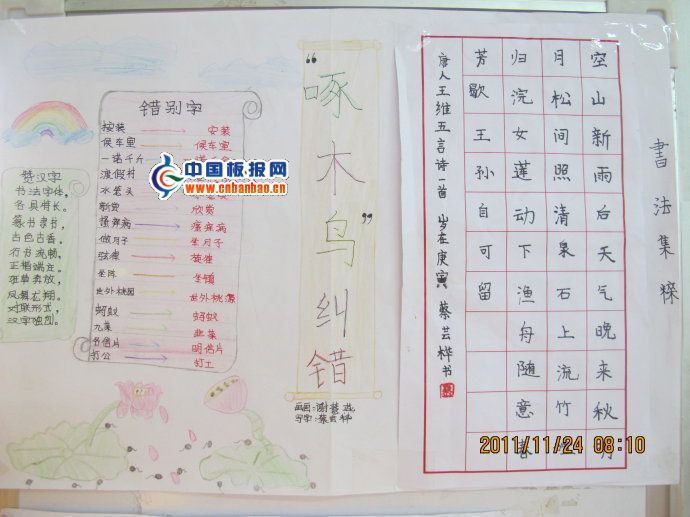 書法集粹
空山新雨后天气晚来秋明
月松间照清泉石上流竹
归浣女莲动下渔舟随意春
芳歇王孙自可留
唐人王维五言诗一首 岁在庚寅 蔡芸桦书
"啄木鸟"纠错
画画:谢
写字:蔡芸桦
错别字
按装 安装
候车室 候车室
一诺千斤
渡假村
水笼头
欣赏
搔痒病 瘙痒病
做月子 坐月子
弦律 旋律
坐阵 坐镇
世外桃园 世外桃源
蚂蚁 蚂蚁
九菜 韭菜
名信片 明信片
打公 打工
赞汉字
书法字体,
各具特长。
篆书隶书,
古色古香。
行书流畅,
正楷端庄。
狂草奔放,
凤翔龙翔。
对联形式,
汉字独创。
中国板报网
www.cnbanbao.cn
2011/11/24 08:10